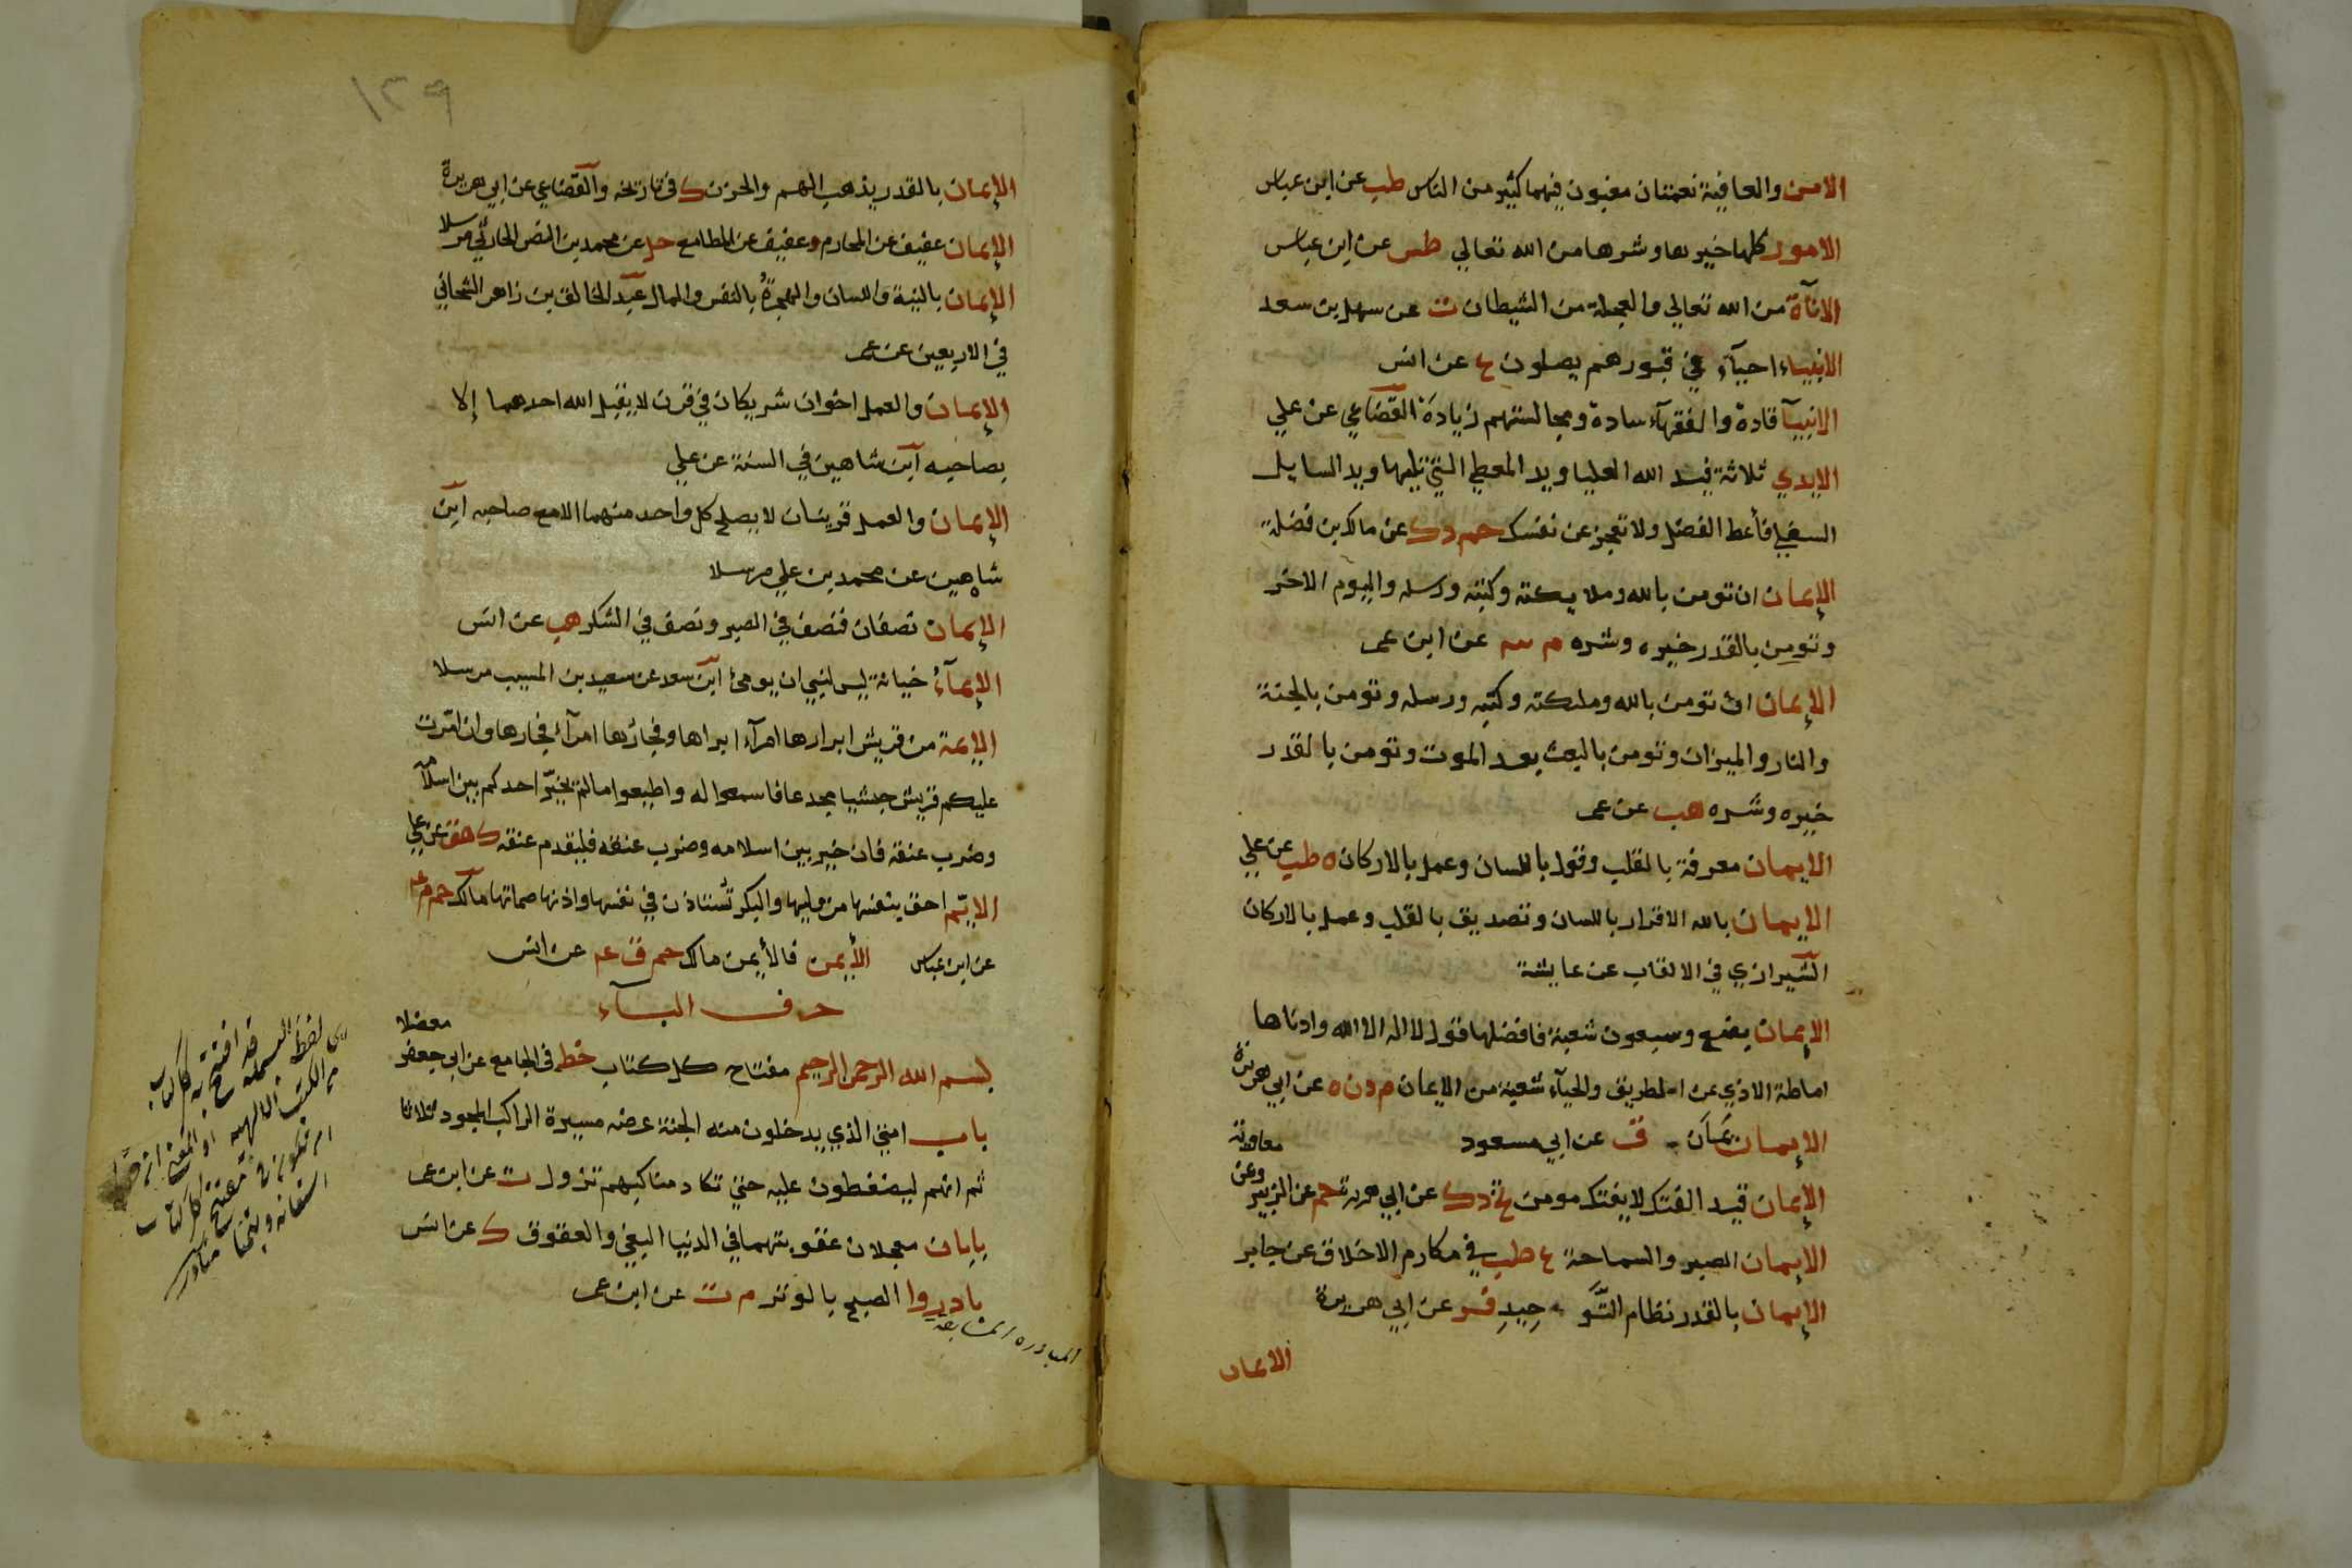 الامن والعافية نعمتان مغبون فيهما كثير من الناس طب عن ابن عباس
الامور كلها خيرها وشرها من الله تعالي طس عن ابن عباس
الاناة من الله تعالي والعجلة من الشيطان ت عن سهل بن سعد
الانبياء احيآء في قبورهم يصلون ع عن انس
الانبيآ قادة والفقهآء سادة ومجالستهم زيادة القضاعي عن علي
الايدي ثلاثة فيد الله العليا ويد المعطي التي تليها ويد السايل
السفلي فأعط الفضل ولا تعجز عن نفسك حم د ك عن مالك بن فضلة
الإيمان ان تومن بالله وملايكته وكتبه ورسله واليوم الاخر
وتومن بالقدر خيره وشره م عن ابن عمر
الإيمان ان تومن بالله وملىكته وكتبه ورسله وتومن بالجنة
والنار والميزان وتومن بالبعث بعد الموت وتومن بالقدر
خيره وشره هب عن عمر
الإيمان معرفة بالقلب وقول باللسان وعمل بالاركان ه طب عن علي
الإيمان بالله الاقرار باللسان وتصديق بالقلب وعمل بالاركان
الشيرازي في الالقاب عن عايشة
الإيمان بضع وسبعون شعبة فافضلها قول لا اله الا الله وادناها
اماطة الاذي عن الطريق والحيآء شعبة من الإيمان م د ن ه عن ابي هريرة
الإيمان يمان ق عن ابي مسعود
الإيمان قيد الفتك لا يفتك مومن تخ د ك عن ابي هريرة حم عن الزبير وعن معاوية
الإيمان الصبر والسماحة ع طب في مكارم الاخلاق عن جابر
الإيمان بالقدر نظام التوحيد فر عن ابي هريرة
الايمان
١٣٩
الإيمان بالقدر يذهب الهم والحزن ك في تاريخه والقضاعي عن ابي هريرة
الإيمان عفيف عن المحارم وعفيف عن المطامع حل عن محمد بن النضر الحارثي مرسلا
الإيمان بالنية واللسان والهجرة بالنفس والمال عبد الخالق بن زاهر الشحاني
في الاربعين عن عمر
الإيمان والعمل اخوان شريكان في قرن لا يقبل الله احدهما إلا
بصاحبه ابن شاهين في السنة عن علي
الإيمان والعمل قرينان لا يصلح كل واحد منهما الا مع صاحبه ابن
شاهين عن محمد بن علي مرسلا
الإيمان نصفان فنصف في الصبر ونصف في الشكر هب عن انس
الإيمآء خيانة ليس لنبي ان يومئ ابن سعد عن سعيد بن المسيب مرسلا
الإيمة من قريش ابرارها امرآء ابراها وفجارها امرآء فجارها وان امرت
عليكم قريش حبشيا مجدعا فاسمعوا له واطيعوا ما لم يخير احدكم بين اسلامه
وضرب عنقه فان خير بين اسلامه وضرب عنقه فليقدم عنقه ك هق عن علي
الايم احق بنفسها من وليها والبكر تستاذن في نفسها واذنها صماتها مالك حم م عه
عن ابن عباس الأيمن فالأيمن مالك حم ق عه عن انس
حرف البآء
بسم الله الرحمن الرحيم مفتاح كل كتاب خط في الجامع عن ابي جعفر معضلا
باب امتي الذي يدخلون منه الجنة عرضه مسيرة الراكب المجود ثلاثا
ثم انهم ليضغطون عليه حتي تكاد مناكبهم تزول ت عن ابن عمر
بابان معجلان عقوبتهما في الدنيا البغي والعقوق ك عن انس
بادروا الصبح بالوتر م ت عن ابن عمر
المبادره المسابقة